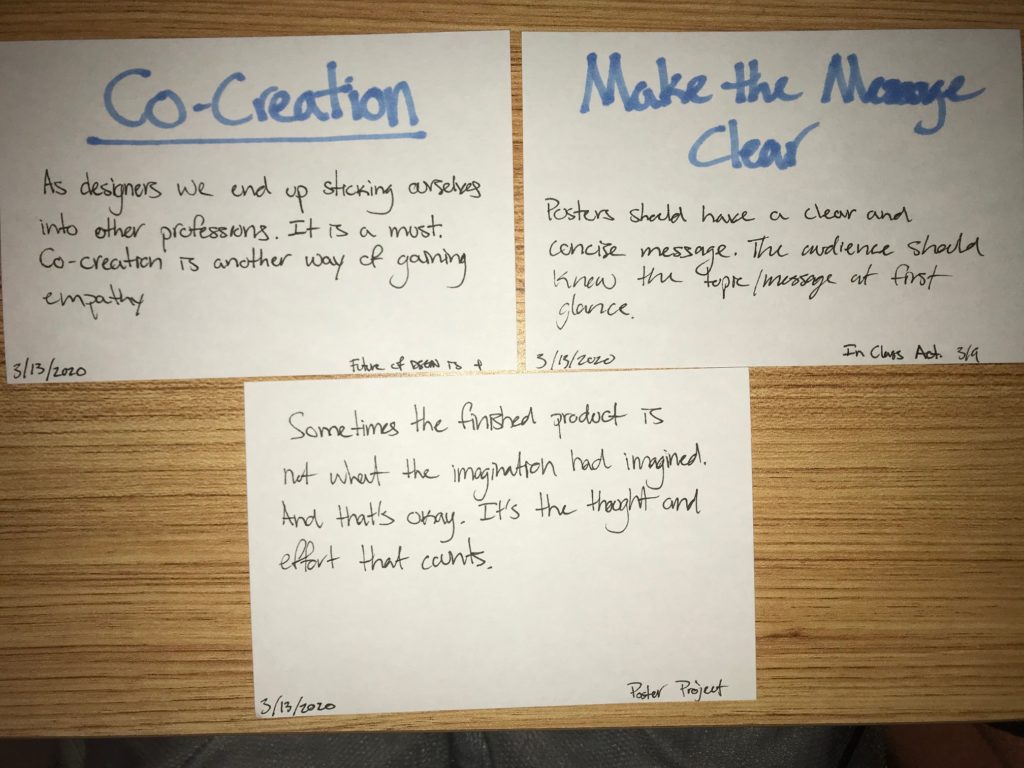 Co-Creation
As designers we end up sticking ourselves
into other professions. It is a must.
Co-creation is another way of gaining
empathy
3/13/2020
Future of DSGN is
Make the Message
Clear
Posters should have a clear and
concise message. The audience should
know the topic/message at first
glance.
3/13/2020
In Class Act. 3/9
Sometimes the finished product is
not what the imagination had imagined.
And that's okay. It's the thought and
effort that counts.
3/13/2020
Poster Project